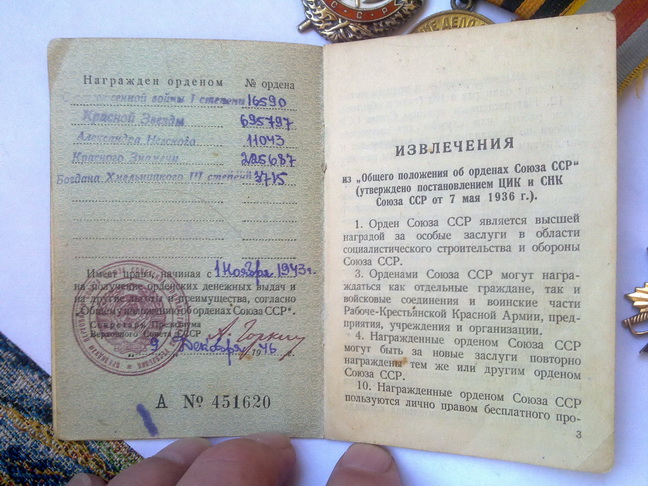 С С Р
ЗА НАШЕ ДЕЛО
Награжден орденом № ордена
Отечественной войны I степени 16590
Красной Звезды 695797
Александра Невского 11043
Красного Знамени 225687
Богдана Хмельницкого III степени 3715
Имеет право, начиная с 1 Ноября 1943 г.
на получение орденских денежных выдач и
на другие льготы и преимущества, согласно
„Общему положению об орденах Союза ССР“.
Секретарь Президиума
Верховного Совета СССР А. Горкин
9 Декабря 1946 г.
А № 451620
ИЗВЛЕЧЕНИЯ
из „Общего положения об орденах Союза ССР“
(утверждено постановлением ЦИК и СНК
Союза ССР от 7 мая 1936 г.).
1. Орден Союза ССР является высшей
наградой за особые заслуги в области
социалистического строительства и обороны
Союза ССР.
3. Орденами Союза ССР могут награ-
ждаться как отдельные граждане, так и
войсковые соединения и воинские части
Рабоче-Крестьянской Красной Армии, пред-
приятия, учреждения и организации.
4. Награжденные орденом Союза ССР
могут быть за новые заслуги повторно
награждены тем же или другим орденом
Союза ССР.
10. Награжденные орденом Союза ССР
пользуются лично правом бесплатного про-
3